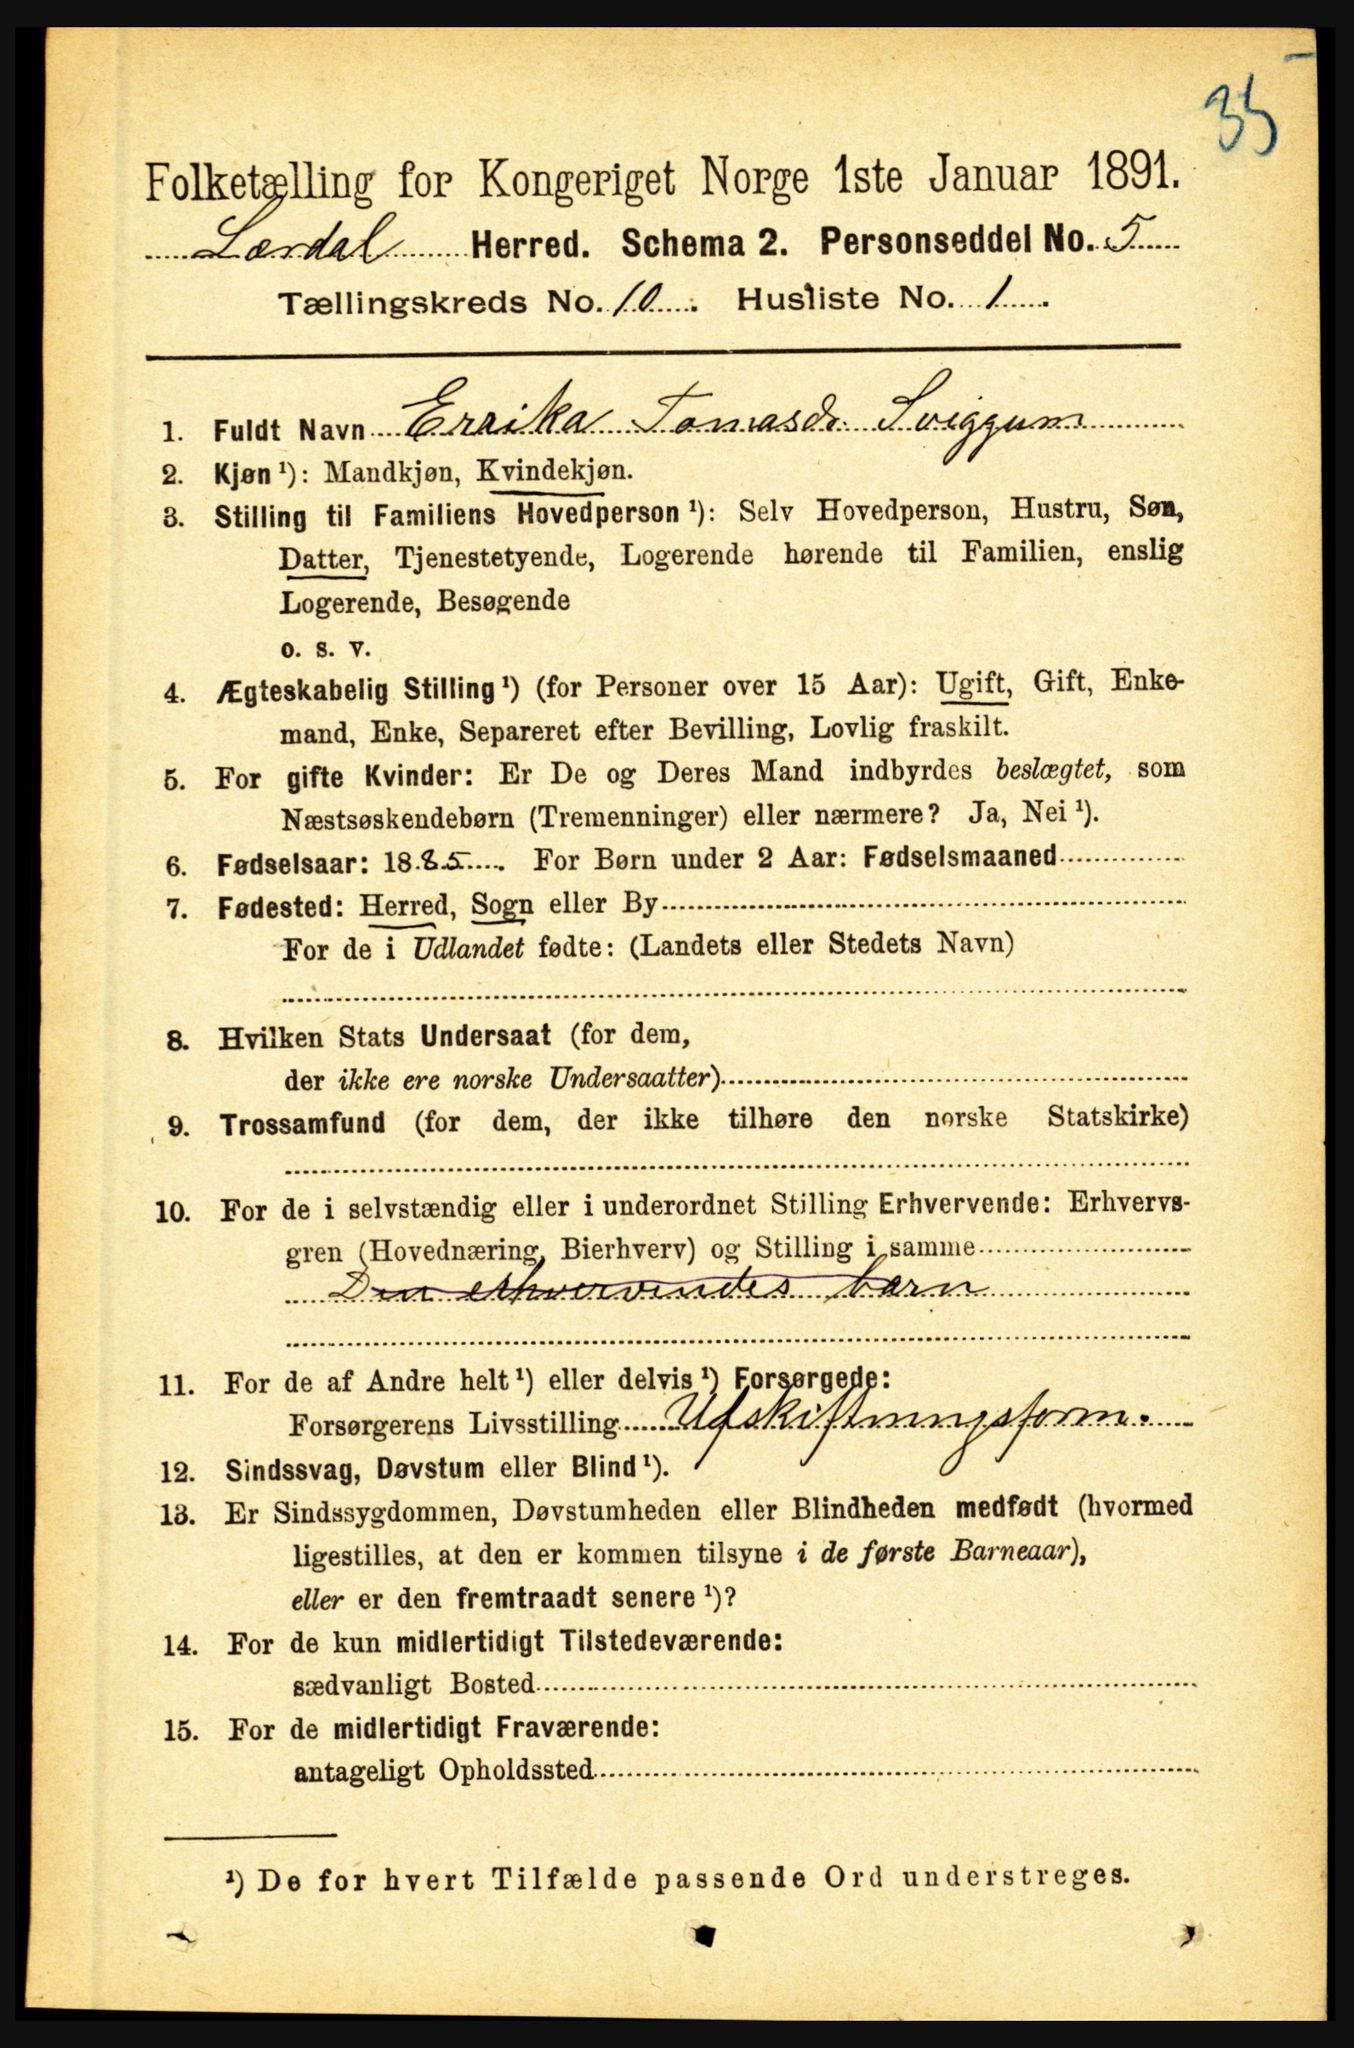 35
Folketælling for Kongeriget Norge 1ste Januar 1891.
Lærdal Herred. Schema 2. Personseddel No. 5
Tællingskreds No. 10. Husliste No. 1.
1. Fuldt Navn Erika Tomasdr. Sviggum
2. Kjøn ¹): Mandkjøn, Kvindekjøn.
3. Stilling til Familiens Hovedperson ¹): Selv Hovedperson, Hustru, Søn,
Datter, Tjenestetyende, Logerende hørende til Familien, enslig
Logerende, Besøgende
o. s. v.
4. Ægteskabelig Stilling ¹) (for Personer over 15 Aar): Ugift, Gift, Enke-
mand, Enke, Separeret efter Bevilling, Lovlig fraskilt.
5. For gifte Kvinder: Er De og Deres Mand indbyrdes beslægtet, som
Næstsøskendebørn (Tremenninger) eller nærmere? Ja, Nei ¹).
6. Fødselsaar: 1885. For Børn under 2 Aar: Fødselsmaaned
7. Fødested: Herred, Sogn eller By
For de i Udlandet fødte: (Landets eller Stedets Navn)
8. Hvilken Stats Undersaat (for dem,
der ikke ere norske Undersaatter)
9. Trossamfund (for dem, der ikke tilhøre den norske Statskirke)
10. For de i selvstændig eller i underordnet Stilling Erhvervende: Erhvervs-
gren (Hovednæring, Bierhverv) og Stilling i samme
Den erhvervendes barn
11. For de af Andre helt ¹) eller delvis ¹) Forsørgede:
Forsørgerens Livsstilling Udskiftningsform.
12. Sindssvag, Døvstum eller Blind ¹).
13. Er Sindssygdommen, Døvstumheden eller Blindheden medfødt (hvormed
ligestilles, at den er kommen tilsyne i de første Barneaar),
eller er den fremtraadt senere ¹)?
14. For de kun midlertidigt Tilstedeværende:
sædvanligt Bosted
15. For de midlertidigt Fraværende:
antageligt Opholdssted
¹) De for hvert Tilfælde passende Ord understreges.